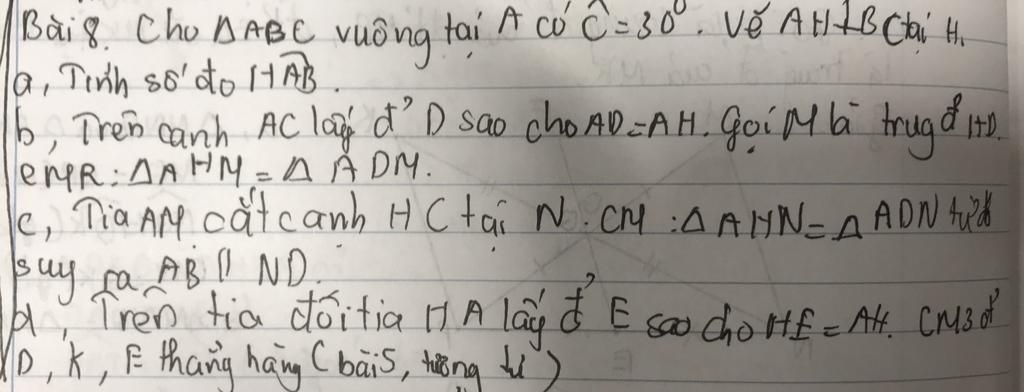 Bài 8. Cho ΔABC vuông tại A có Ĉ = 30⁰. Vẽ AH ⊥ BC tại H.
a, Tính số đo HÂB.
b, Trên cạnh AC lấy đ' D sao cho AD = AH. Gọi M là trug đ' HD.
CMR: ΔAHM = ΔADM.
c, Tia AM cắt cạnh HC tại N. CM: ΔAHN = ΔADN từ đó
suy ra AB // ND.
d, Trên tia đối tia HA lấy đ' E sao cho HE = AH. CM 3 đ'
D, K, E thẳng hàng (bài 5, tương tự)